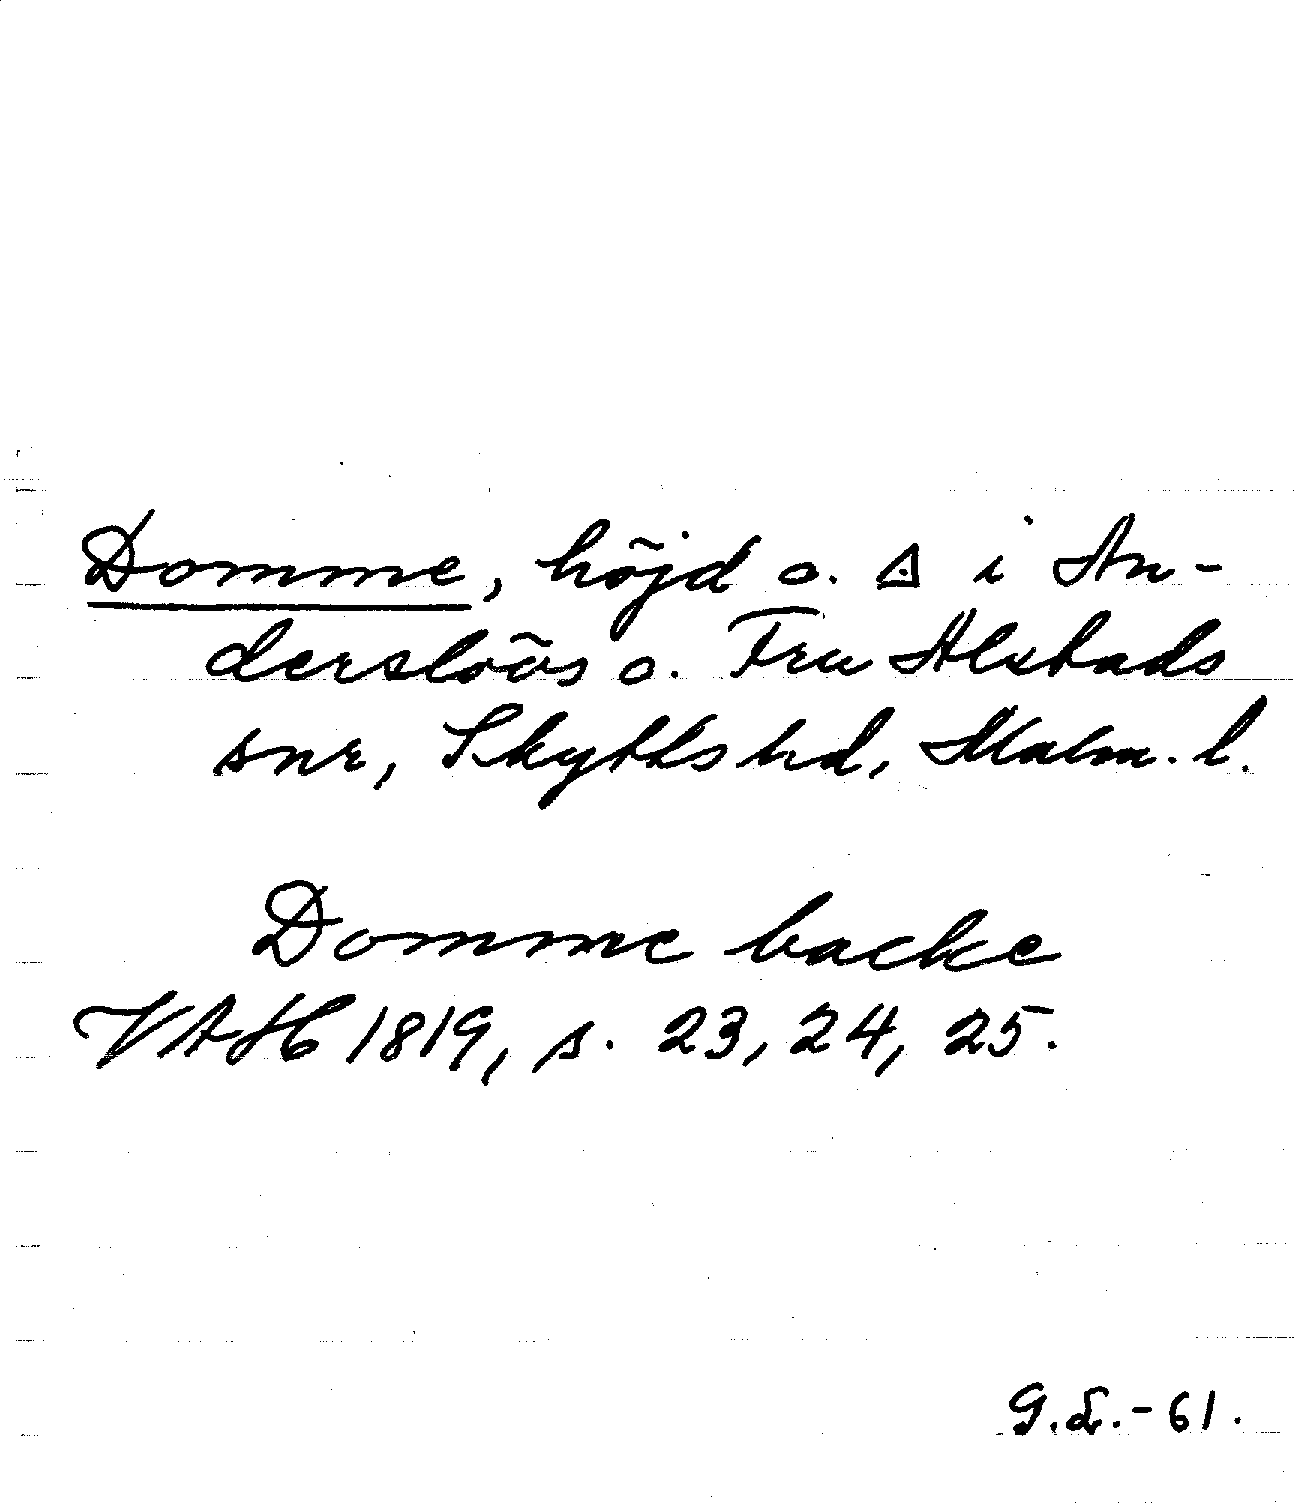 Domme, höjd o. △ i An-
derslövs o. Fru Alstads
snr, Skytts hd, Malm. l.
Domme backe
VAH 1819, s. 23, 24, 25.
G.L.-61.